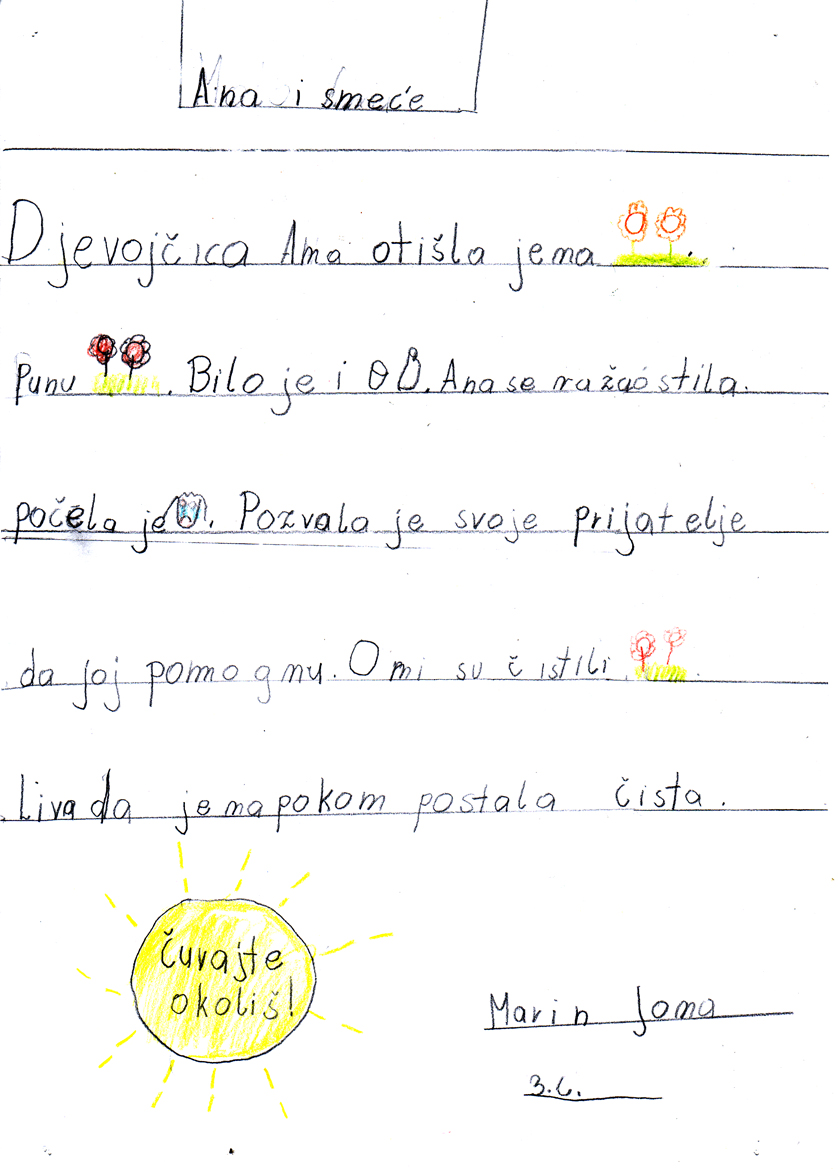 Ana i smeće
Djevojčica Ana otišla je na
punu . Bilo je i . Ana se ražaostila.
počela je . Pozvala je svoje prijatelje
da joj pomognu. Oni su čistili
Livada je napokom postala čista.
čuvajte
okoliš!
Marin Joma
3.6.